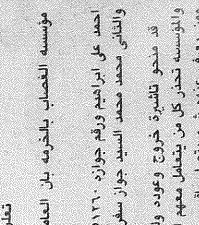 تعلن
مؤسسه الغصلب بالخرمه بان العامل
احمد على ابراهيم ورقم جوازه ٥١١٦٠
والثانى محمد محمد السيد جواز سفر
قد منحو تاشيرة خروج وعوده ولم
والمؤسسه تحذر كل من يتعامل معهم او